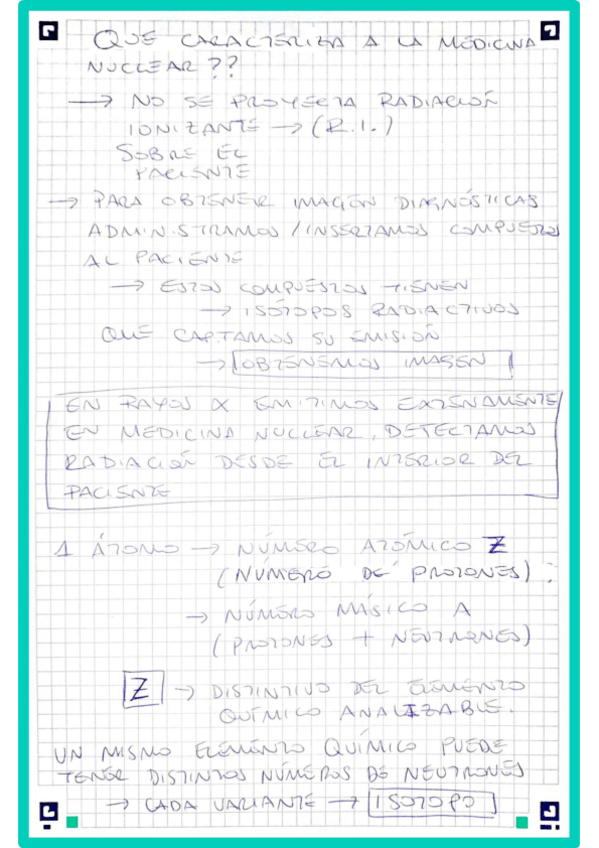 QUE CARACTERIZA A LA MEDICINA
NUCLEAR??
→ NO SE PROYECTA RADIACIÓN
IONIZANTE → (R.I.)
SOBRE EL
PACIENTE
→ PARA OBTENER IMAGEN DIAGNÓSTICAS
ADMINISTRAMOS / INSERTAMOS COMPUESTOS
AL PACIENTE
→ ESTOS COMPUESTOS TIENEN
→ ISÓTOPOS RADIACTIVOS
QUE CAPTAMOS SU EMISIÓN
→ OBTENEMOS IMAGEN
EN RAYOS X EMITIMOS EXTERNAMENTE
EN MEDICINA NUCLEAR, DETECTAMOS
RADIACIÓN DESDE EL INTERIOR DEL
PACIENTE
1 ÁTOMO → NÚMERO ATÓMICO Z
(NÚMERO DE PROTONES) :
→ NÚMERO MÁSICO A
(PROTONES + NEUTRONES)
Z → DISTINTIVO DEL ELEMENTO
QUÍMICO ANALIZABLE.
UN MISMO ELEMENTO QUÍMICO PUEDE
TENER DISTINTOS NÚMEROS DE NEUTRONES
→ CADA VARIANTE → ISOTOPO